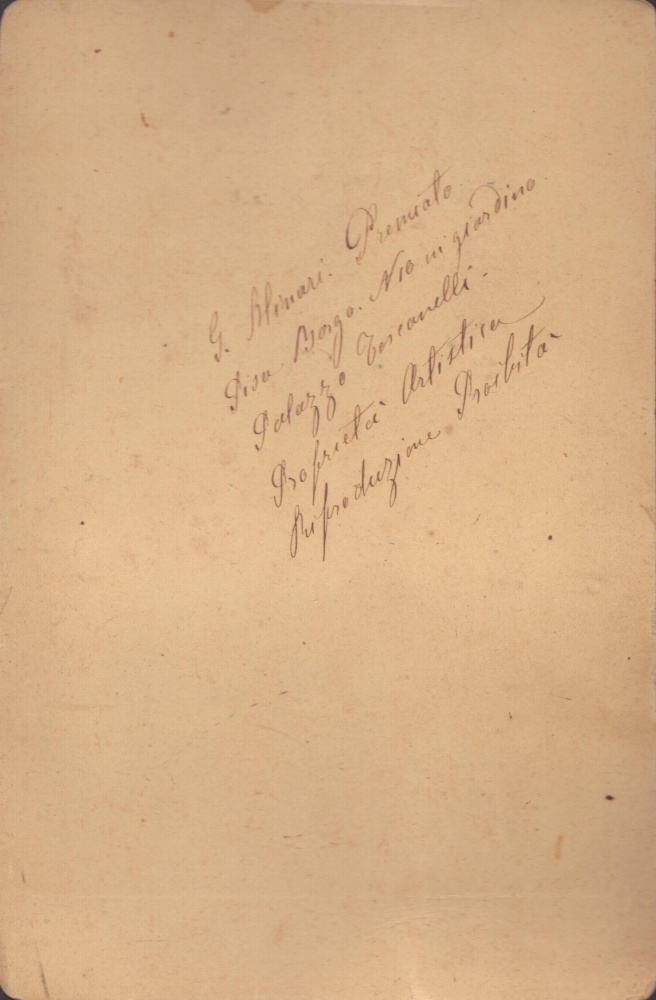 G. Alinari. Premiato
Pisa Borgo. N10 in giardino.
Palazzo Toscanelli.
Proprietà Artistica
Riproduzione Proibita